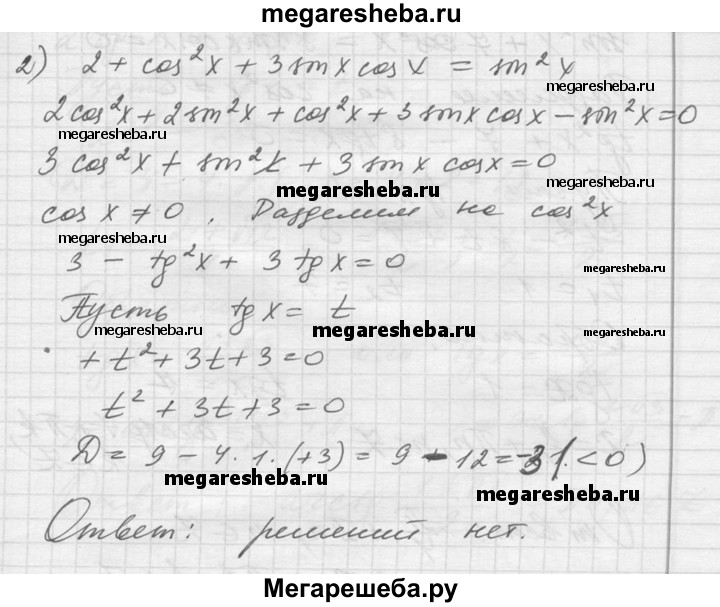 megaresheba.ru
2) 2 + cos²x + 3 sin x cos x = sin²x
2cos²x + 2 sin²x + cos²x + 3 sin x cos x − sin²x = 0
megaresheba.ru
megaresheba.ru
3 cos²x + sin²x + 3 sin x cos x = 0
megaresheba.ru
cos x ≠ 0. Разделим на cos²x
megaresheba.ru
3 − tg²x + 3 tg x = 0
megaresheba.ru
Пусть tg x = t
megaresheba.ru
megaresheba.ru
megaresheba.ru
+ t² + 3t + 3 = 0
t² + 3t + 3 = 0
D = 9 − 4 · 1 · (+3) = 9 − 12 = −3 (< 0)
megaresheba.ru
megaresheba.ru
Ответ: решений нет.
Мегарешеба.ру